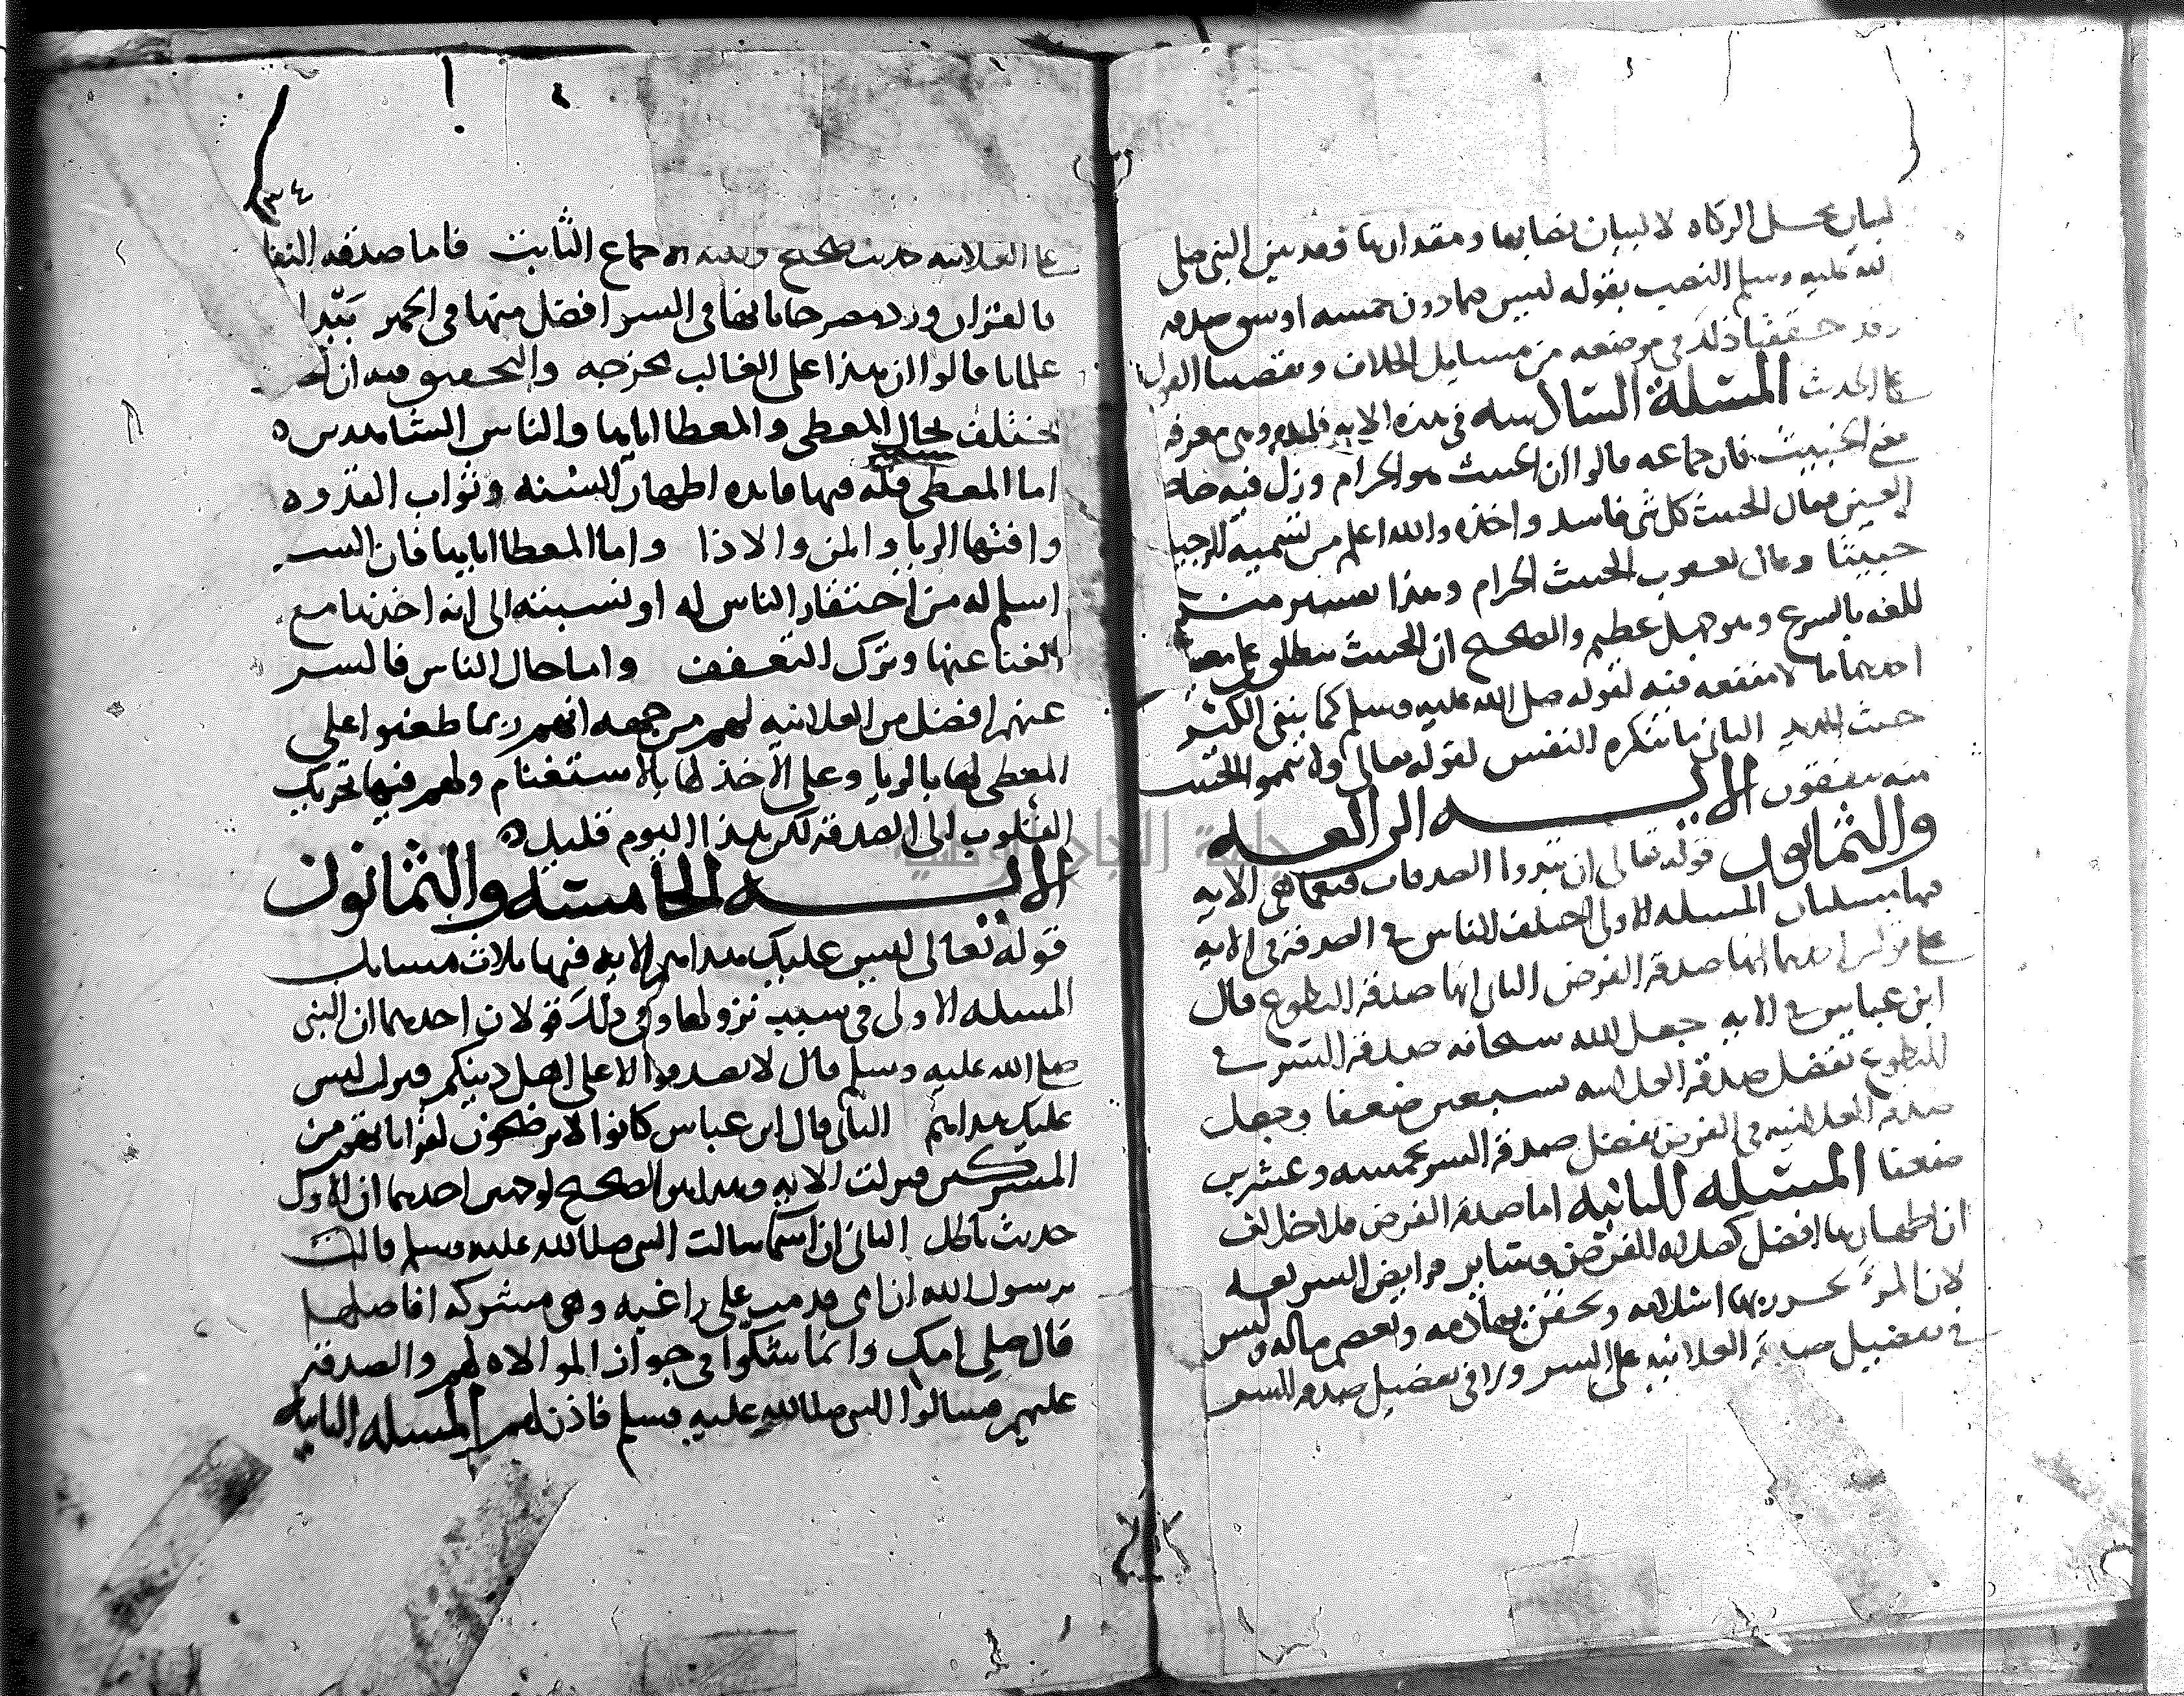 لبيان محل الزكاه لا لبيان نصابها ومقدارها وقد بين النبي صلى
الله عليه وسلم النصب بقوله ليس فيما دون خمسه اوسق صدقه
وقد حققنا ذلك في موضعه من مسايل الخلاف وتقصينا القول
على الحديث المسئلة السادسه في هذه الايه فايده وهي معرفه
معنى الخبيث فان جماعه قالوا ان الخبيث هو الحرام وزل فيه صاحب
العين فقال الخبيث كل شي فاسد واخذه والله اعلم من تسميه الرجيع
خبيثا وقال يعقوب الخبيث الحرام وهذا تفسير منه
للغه بالشرع وهو جهل عظيم والصحيح ان الخبيث يطلق على معنيين
احدهما ما لا منفعه فيه لقوله صلى الله عليه وسلم كما ينفي الكير
خبث الحديد الثاني ما تنكره النفس لقوله تعالى ولا تيمموا الخبيث
منه تنفقون الايــــه الرابعه
والثمانون قوله تعالى ان تبدوا الصدقات فنعما هي الايه
فيها مسئلتان المسئله الاولى اختلف الناس في الصدقة في الايه
على قولين احدهما انها صدقة الفرض الثاني انها صدقه التطوع قال
ابن عباس في الايه جعل الله سبحانه صدقه السر في
التطوع تفضل صدقة العلانيه سبعين ضعفا وجعل
صدقه العلانيه في الفرض تفضل صدقه السر بخمسه وعشرين
ضعفا المسئله الثانيه اما صدقه الفرض فلا خلاف
ان اظهارها افضل كصلاه الفرض وسائر فرايض الشريعه
لان المرء يحرز بها اسلامه ويحقن بها دمه ويعصم ماله وليس
في تفضيل صدقة العلانيه على السر ولا في تفضيل صدقه السر
٣٤
على العلانيه حديث صحيح ولكنه الاجماع الثابت فاما صدقه النفل
فالقران ورد مصرحا بانها في السر افضل منها في الجهر بيد ان
علمانا قالوا ان هذا على الغالب مخرجه والتحقيق فيه ان
تختلف بحال المعطي والمعطا اياها والناس الشاهدين
اما المعطي فله فيها فايده اظهار السنه وثواب القدوه
وافتها الريا والمن والاذا واما المعطا اياها فان السر
اسلم له من احتقار الناس له او نسبته الى انه اخذها مع
الغنا عنها وترك التعفف واما حال الناس فالسر
عنهم افضل من العلانيه لهم من جهه انهم ربما طعنوا على
المعطي لها بالريا وعلى الاخذ لها بالاستغنام ولهم فيها تحريك
القلوب الى الصدقه لكن هذا اليوم قليل
الايــــه الخامسه والثمانون
قوله تعالى ليس عليك هداهم الايه فيها ثلاث مسايل
المسله الاولى في سبب نزولها وفي ذلك قولان احدهما ان النبي
صلى الله عليه وسلم قال لا تصدقوا الا على اهل دينكم فنزلت ليس
عليك هداهم الثاني قال ابن عباس كانوا لا يرضخون لقراباتهم من
المشركين فنزلت الايه وهذا هو الصحيح لوجهين احدهما ان الاول
حديث باطل الثاني ان اسما سالت النبي صلى الله عليه وسلم فقالت
يرسول الله ان امي قدمت علي راغبه وهي مشركه افاصلها
قال صلي امك وانما شكوا في جواز الموالاه لهم والصدقه
عليهم فسالوا النبي صلى الله عليه وسلم فاذن لهم المسله الثانيه